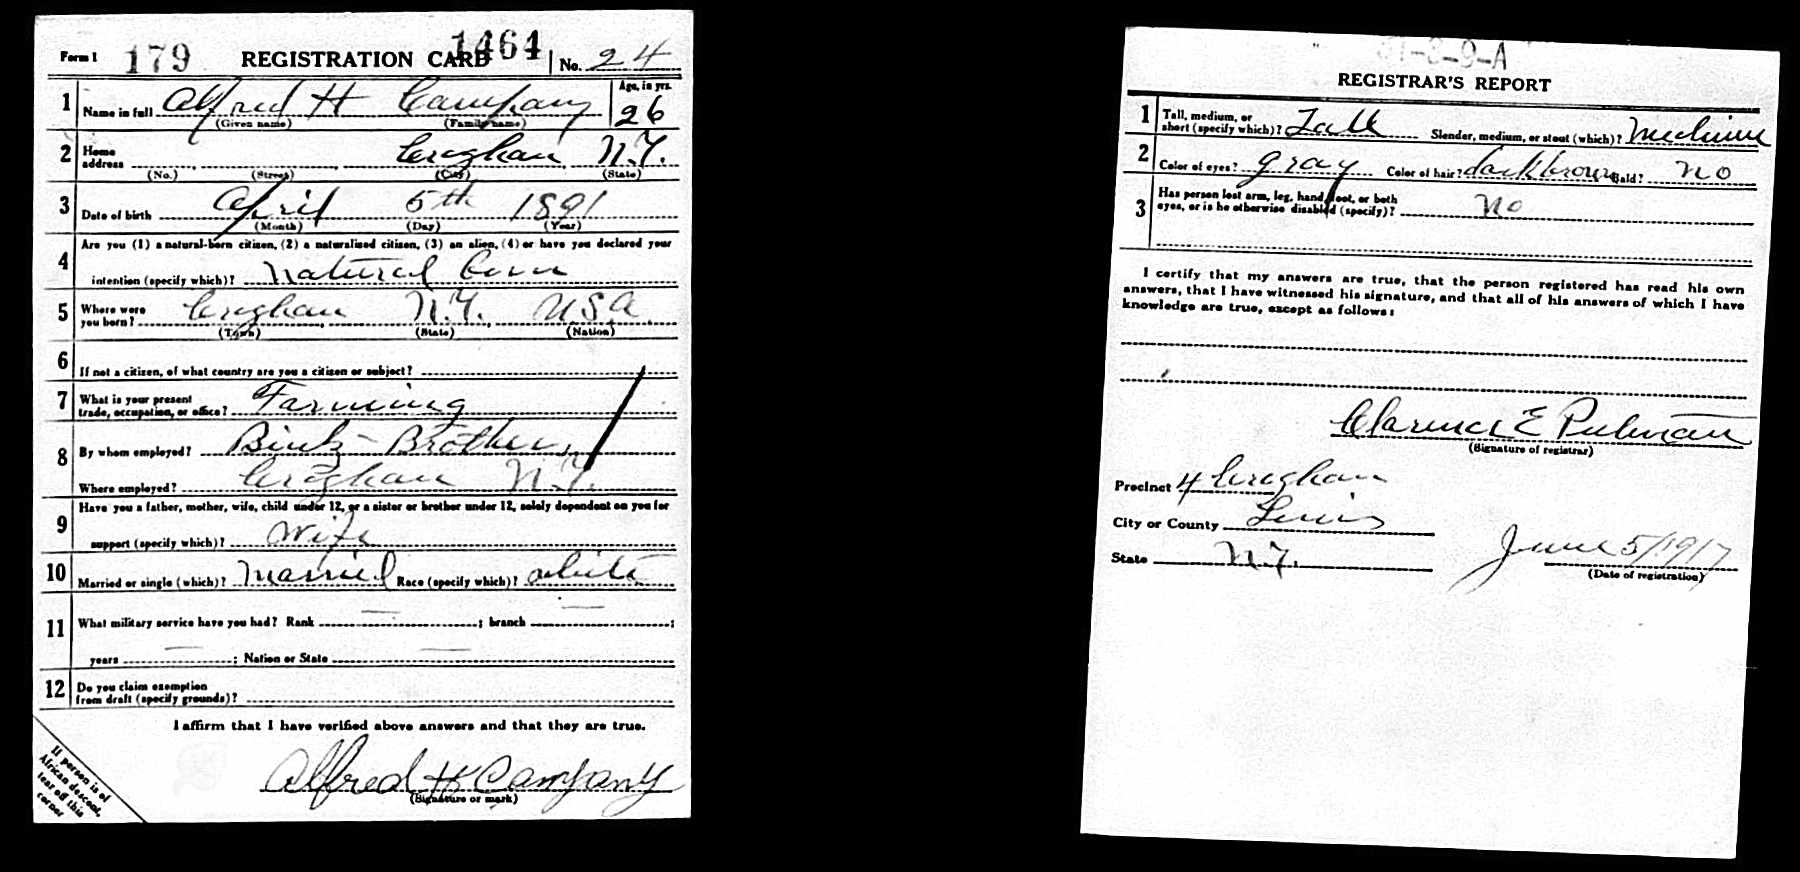 Form 1 179 REGISTRATION CARD 1464 No. 24
1 Name in full Alfred H Company Age, in yrs. 26
(Given name) (Family name)
2 Home address Croghan N.Y.
(No.) (Street) (City) (State)
3 Date of birth April 5th 1891
(Month) (Day) (Year)
4 Are you (1) a natural-born citizen, (2) a naturalized citizen, (3) an alien, (4) or have you declared your
intention (specify which)? Natural Born
5 Where were you born? Croghan N.Y. USA
(Town) (State) (Nation)
6 If not a citizen, of what country are you a citizen or subject?
7 What is your present trade, occupation, or office? Farming
8 By whom employed? Brothers
Where employed? Croghan N.Y.
9 Have you a father, mother, wife, child under 12, or a sister or brother under 12, solely dependent on you for
support (specify which)? Wife
10 Married or single (which)? Married Race (specify which)? White
11 What military service have you had? Rank — ; branch — ;
years — ; Nation or State —
12 Do you claim exemption
from draft (specify grounds)?
I affirm that I have verified above answers and that they are true.
Alfred H Company
(Signature or mark)
If person is of
African descent,
tear off this
corner
REGISTRAR'S REPORT
1 Tall, medium, or short (specify which)? Tall Slender, medium, or stout (which)? Medium
2 Color of eyes? Gray Color of hair? dark brown Bald? No
3 Has person lost arm, leg, hand, foot, or both
eyes, or is he otherwise disabled (specify)? No
I certify that my answers are true, that the person registered has read his own
answers, that I have witnessed his signature, and that all of his answers of which I have
knowledge are true, except as follows:
Clarence E
(Signature of registrar)
Precinct 4 Croghan
City or County Lewis
State N.Y.
June 5/1917
(Date of registration)